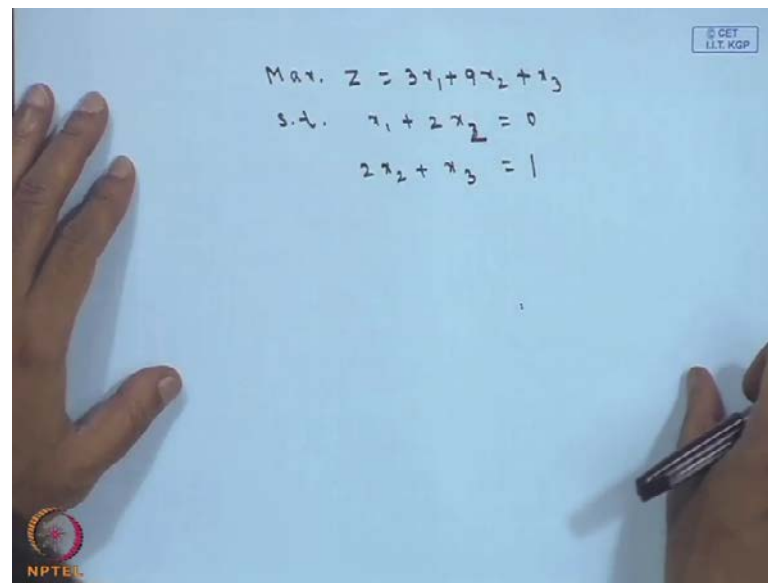 © CET
I.I.T. KGP
Max. Z = 3x₁ + 9x₂ + x₃
s.t. x₁ + 2x₂ = 0
2x₂ + x₃ = 1
NPTEL